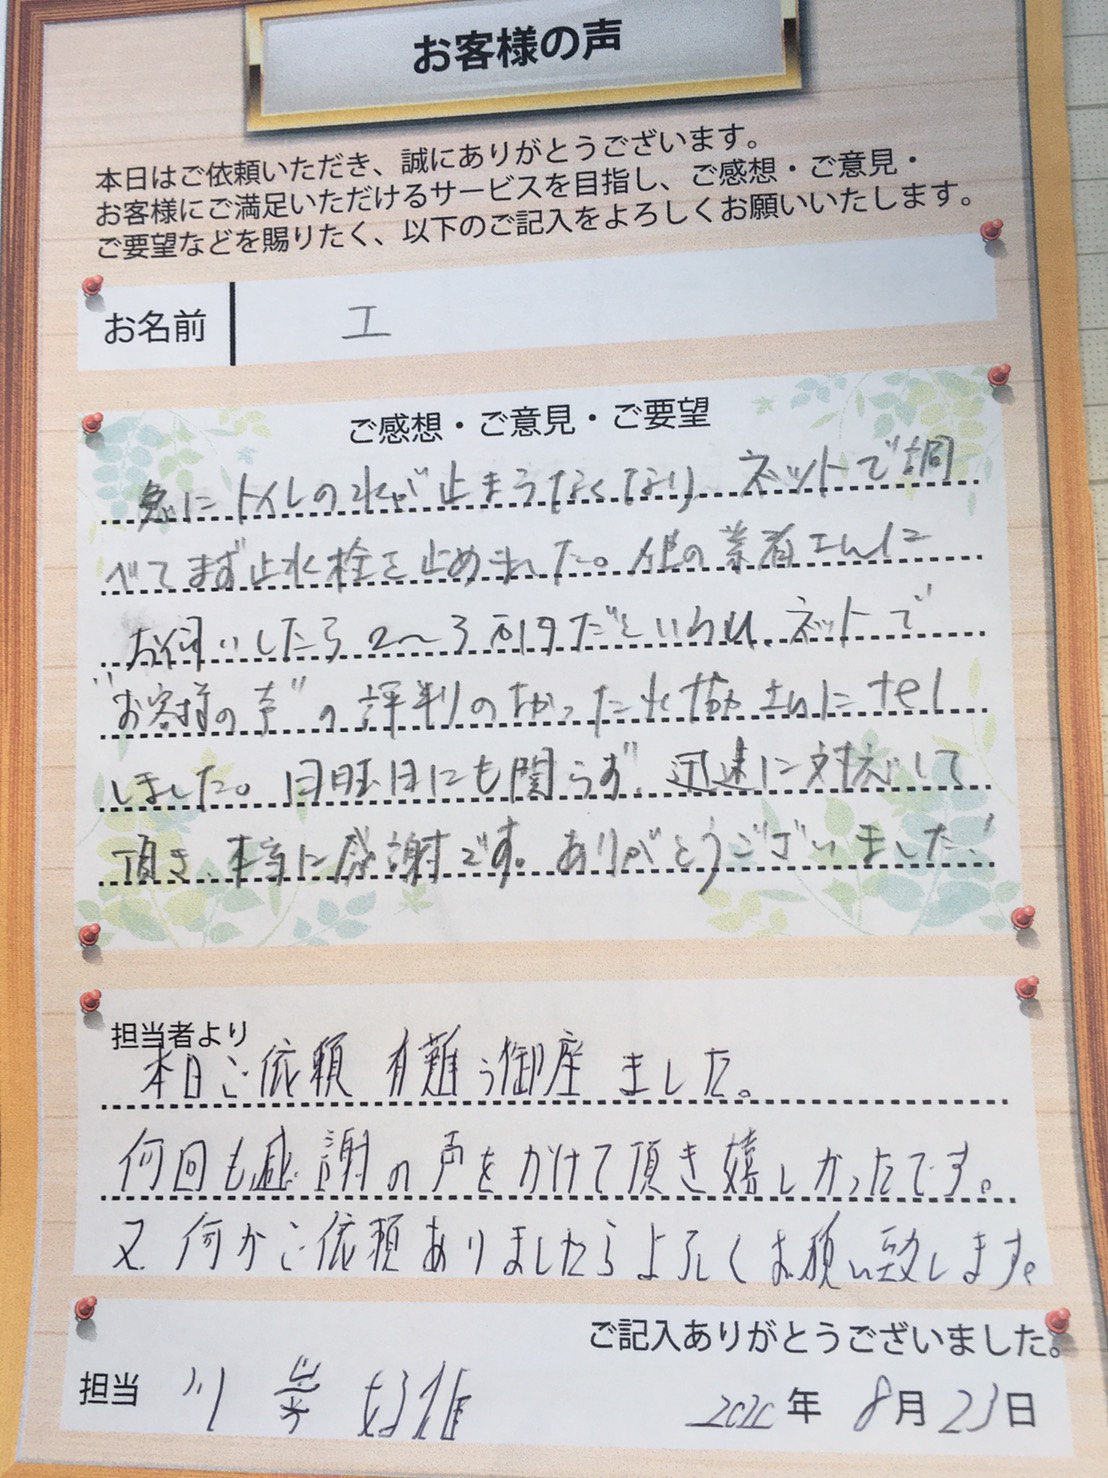 お客様の声
本日はご依頼いただき、誠にありがとうございます。
お客様にご満足いただけるサービスを目指し、ご感想・ご意見・
ご要望などを賜りたく、以下のご記入をよろしくお願いいたします。
お名前 工
ご感想・ご意見・ご要望
急にトイレの水が止まらなくなり、ネットで調
べてまず止水栓を止めました。他の業者さんに
お伺いしたら2〜3万円だといわれ、ネットで
"お客様の声"の評判のよかった水協さんにtel
しました。日曜日にも関らず、迅速に対応して
頂き、本当に感謝です。ありがとうございました!
担当者より
本日ご依頼 有難う御座ました。
何回も感謝の声をかけて頂き嬉しかったです。
又、何かご依頼ありましたらよろしくお願い致します。
ご記入ありがとうございました。
担当 川
2020年 8月23日